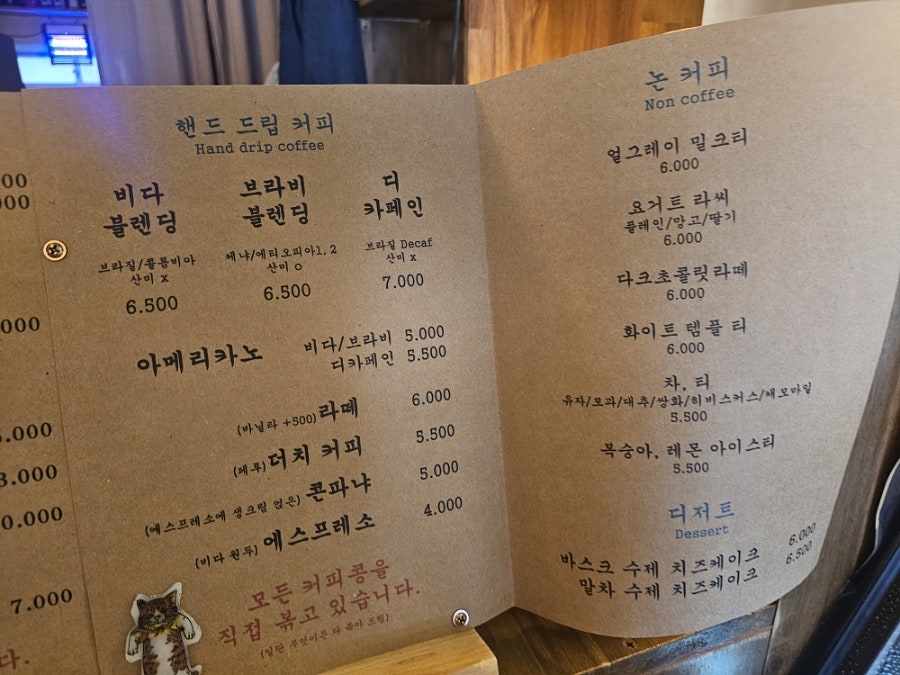 00
000
000
5.000
3.000
0.000
7.000
다.
핸드 드립 커피
Hand drip coffee
비다
블렌딩
브라질/콜롬비아
산미 x
6.500
브라비
블렌딩
케냐/에티오피아1, 2
산미 o
6.500
디
카페인
브라질 Decaf
산미 x
7.000
아메리카노 비다/브라비 5.000
디카페인 5.500
(바닐라 +500) 라떼 6.000
(페루) 더치 커피 5.500
(에스프레소에 생크림 얹은) 콘파냐 5.000
(비다 원두) 에스프레소 4.000
모든 커피콩을
직접 볶고 있습니다.
(일단 무엇이든 다 볶아 드림)
논 커피
Non coffee
얼그레이 밀크티
6.000
요거트 라씨
플레인/망고/딸기
6.000
다크초콜릿라떼
6.000
화이트 템플 티
6.000
차, 티
유자/모과/대추/쌍화/히비스커스/캐모마일
5.500
복숭아, 레몬 아이스티
5.500
디저트
Dessert
바스크 수제 치즈케이크 6.000
말차 수제 치즈케이크 6.500